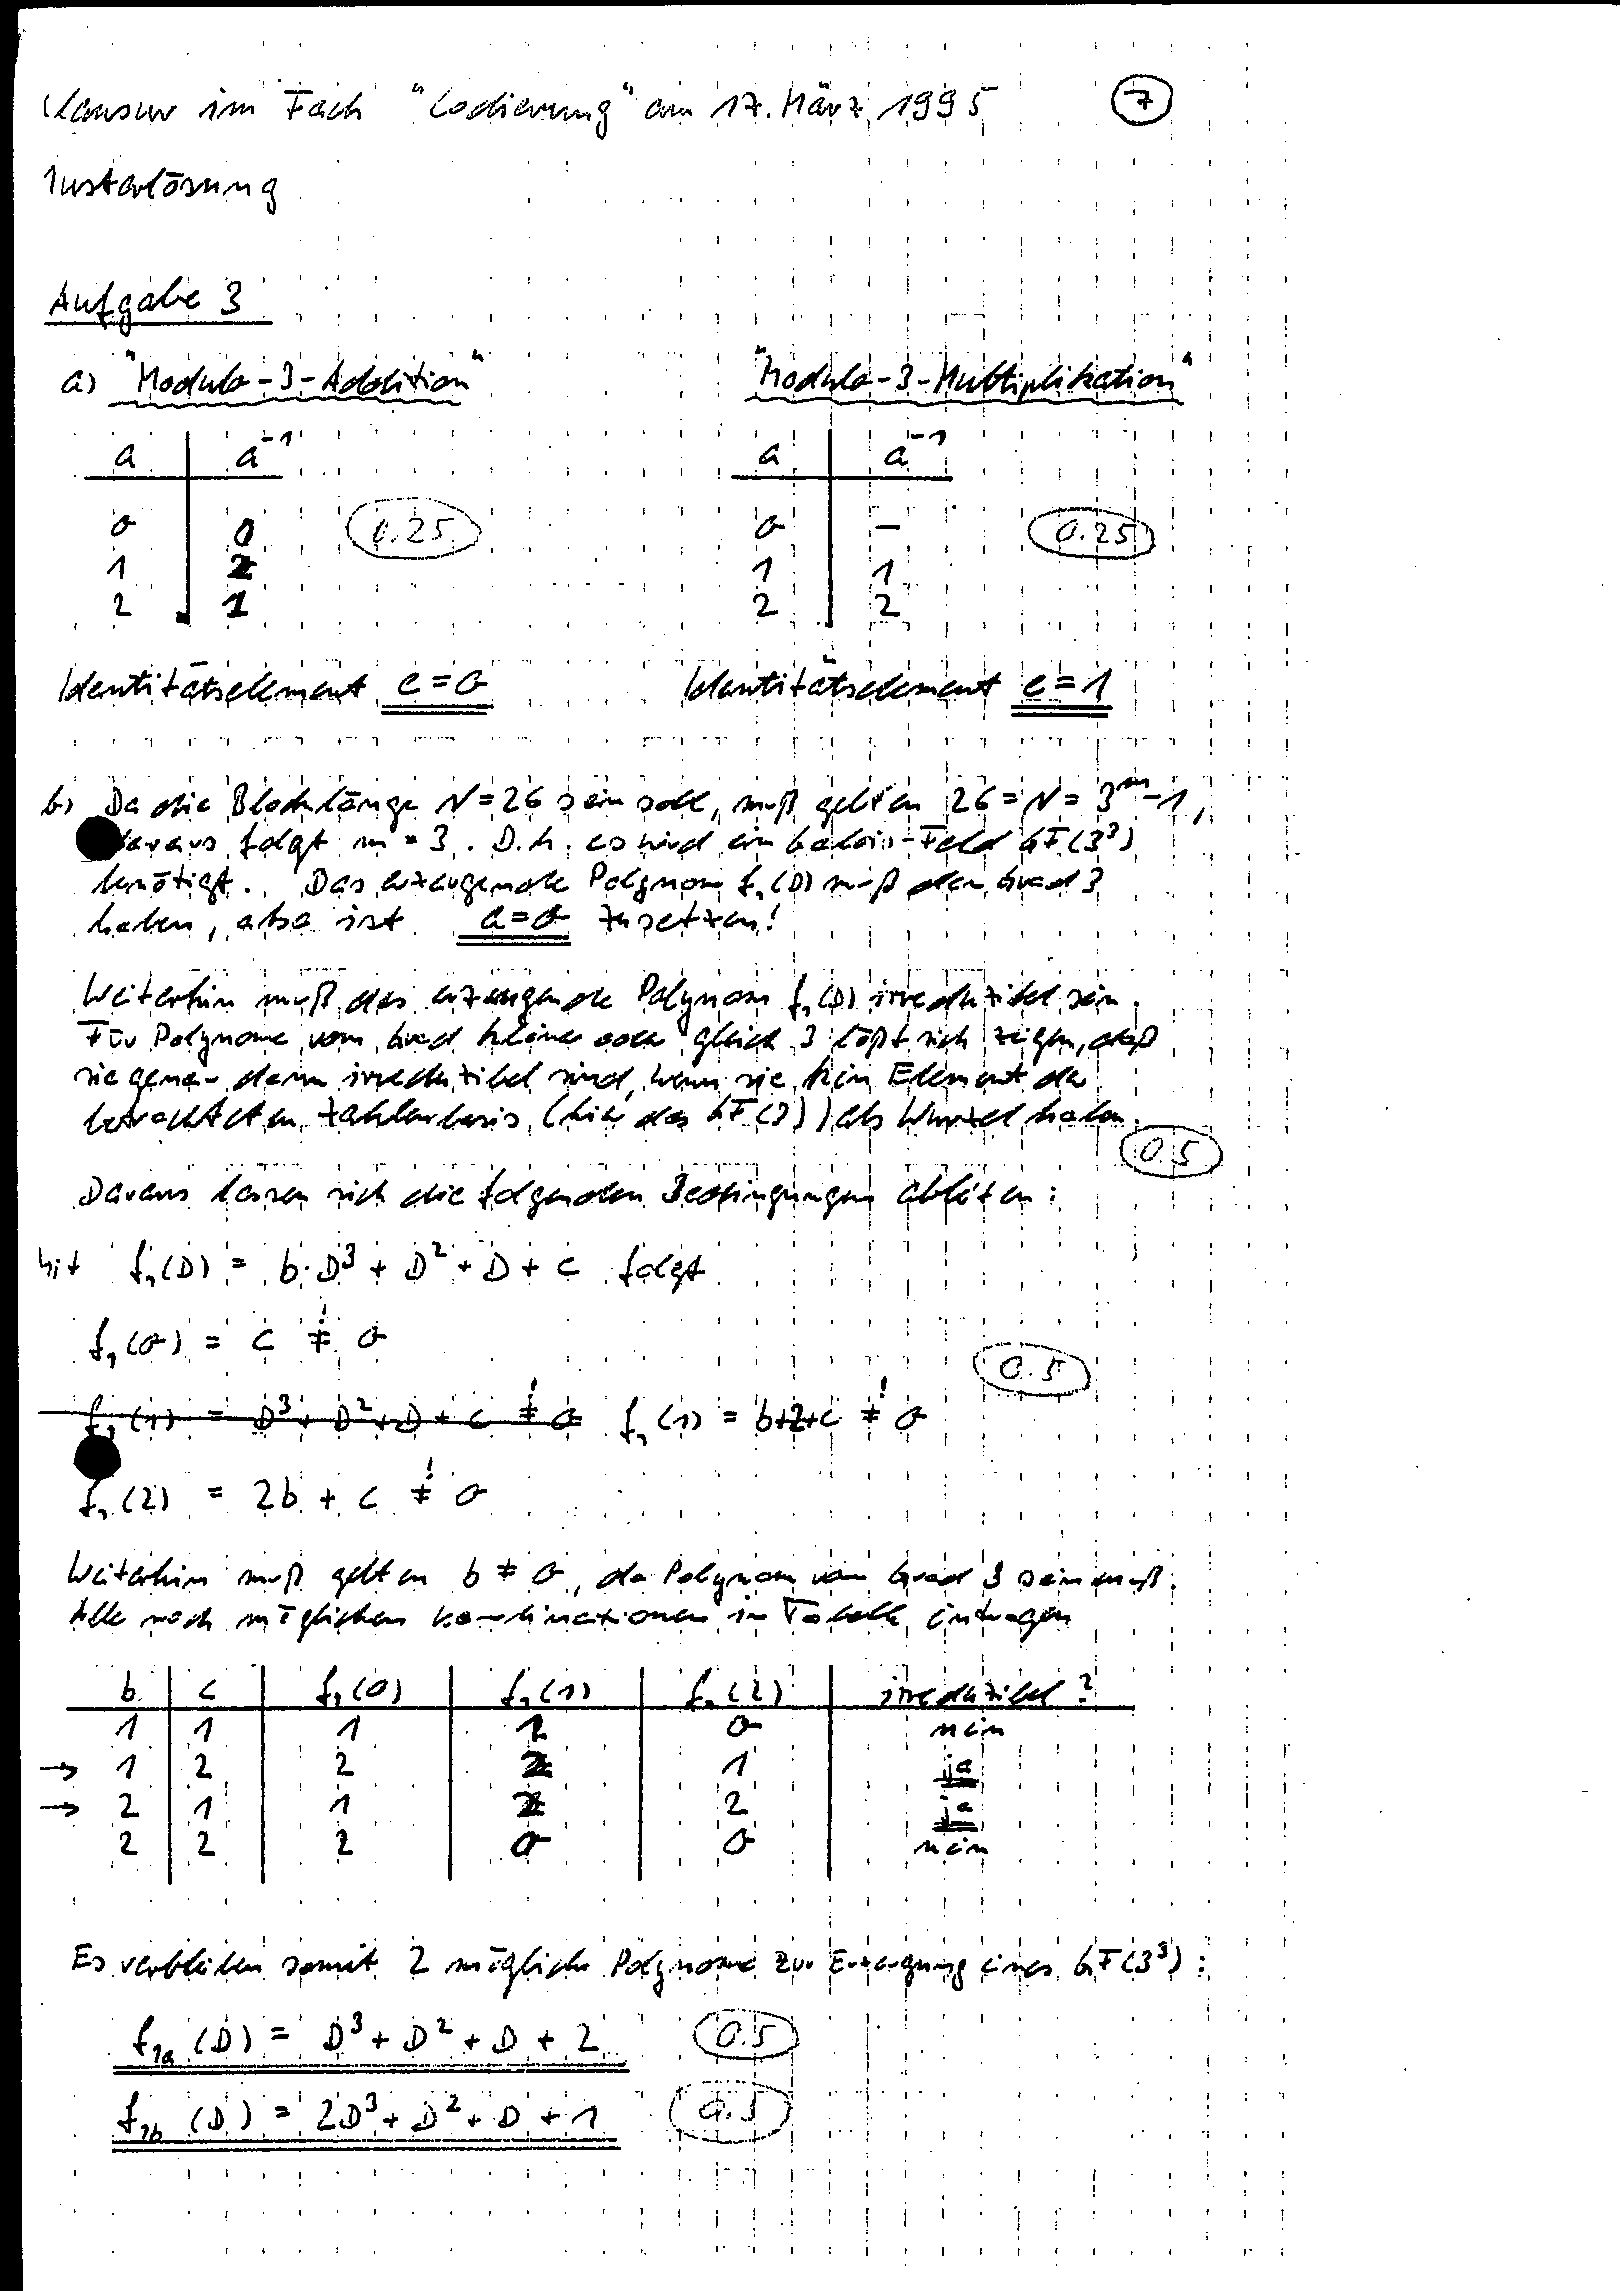 Klausur im Fach "Codierung" am 17. März 1995 7
Musterlösung
Aufgabe 3
a) "Modulo-3-Addition" "Modulo-3-Multiplikation"
a a⁻¹ a a⁻¹
0 0 0.25 0 – 0.25
1 2 1 1
2 1 2 2
Identitätselement e=0 Identitätselement e=1
b) Da die Blocklänge N=26 sein soll, muß gelten 26=N=3ᵐ-1,
daraus folgt m=3. D.h. es wird ein Galois-Feld GF(3³)
benötigt. Das erzeugende Polynom f₁(D) muß den Grad 3
haben, also ist a=0 zu setzen!
Weiterhin muß das erzeugende Polynom f₁(D) irreduzibel sein.
Für Polynome vom Grad kleiner oder gleich 3 läßt sich zeigen, daß
sie genau dann irreduzibel sind, wenn sie kein Element der
betrachteten Zahlenbasis (hier das GF(3)) als Wurzel haben.
0.5
Daraus lassen sich die folgenden Bedingungen ableiten:
Mit f₁(D) = b·D³ + D² + D + c folgt
f₁(0) = c ≠! 0
0.5
f₁(1) = D³ + D² + D + c ≠! 0 f₁(1) = b+2+c ≠! 0
f₁(2) = 2b + c ≠! 0
Weiterhin muß gelten b ≠ 0, da Polynom vom Grad 3 sein muß.
Alle noch möglichen Kombinationen in Tabelle eintragen
b c f₁(0) f₁(1) f₁(2) irreduzibel?
1 1 1 1 0 nein
→ 1 2 2 2 1 ja
→ 2 1 1 2 2 ja
2 2 2 0 0 nein
Es verbleiben somit 2 mögliche Polynome zur Erzeugung eines GF(3³):
f₁ₐ(D) = D³ + D² + D + 2 0.5
f₁b(D) = 2D³ + D² + D + 1 0.5